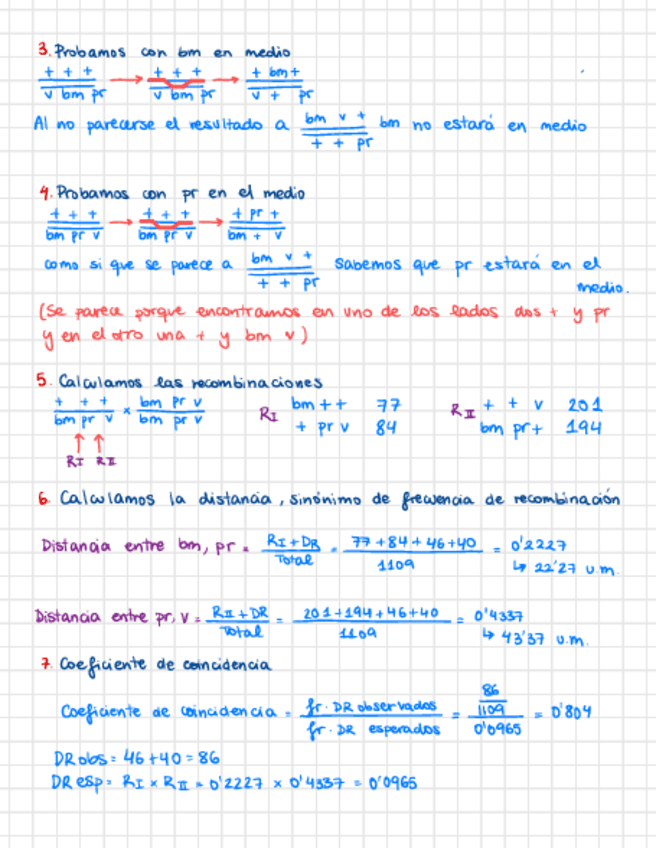 3. Probamos con bm en medio
+ + + → + + + → + bm +
v bm pr v bm pr v + pr
Al no parecerse el resultado a bm v + / + + pr bm no estará en medio
4. Probamos con pr en el medio
+ + + → + + + → + pr +
bm pr v bm pr v bm + v
como si que se parece a bm v + / + + pr sabemos que pr estará en el
medio.
(Se parece porque encontramos en uno de los lados dos + y pr
y en el otro una + y bm v)
5. Calculamos las recombinaciones
+ + + × bm pr v RI bm + + 77 RII + + v 201
bm pr v bm pr v + pr v 84 bm pr + 194
↑ ↑
RI RII
6. Calculamos la distancia, sinónimo de frecuencia de recombinación
Distancia entre bm, pr = RI + DR / Total = 77 + 84 + 46 + 40 / 1109 = 0'2227
↳ 22'27 u.m.
Distancia entre pr, v = RII + DR / Total = 201 + 194 + 46 + 40 / 1109 = 0'4337
↳ 43'37 u.m.
7. Coeficiente de coincidencia
Coeficiente de coincidencia = fr. DR observados / fr. DR esperados = 86 / 1109 / 0'0965 = 0'804
DR obs = 46 + 40 = 86
DR esp = RI × RII = 0'2227 × 0'4337 = 0'0965